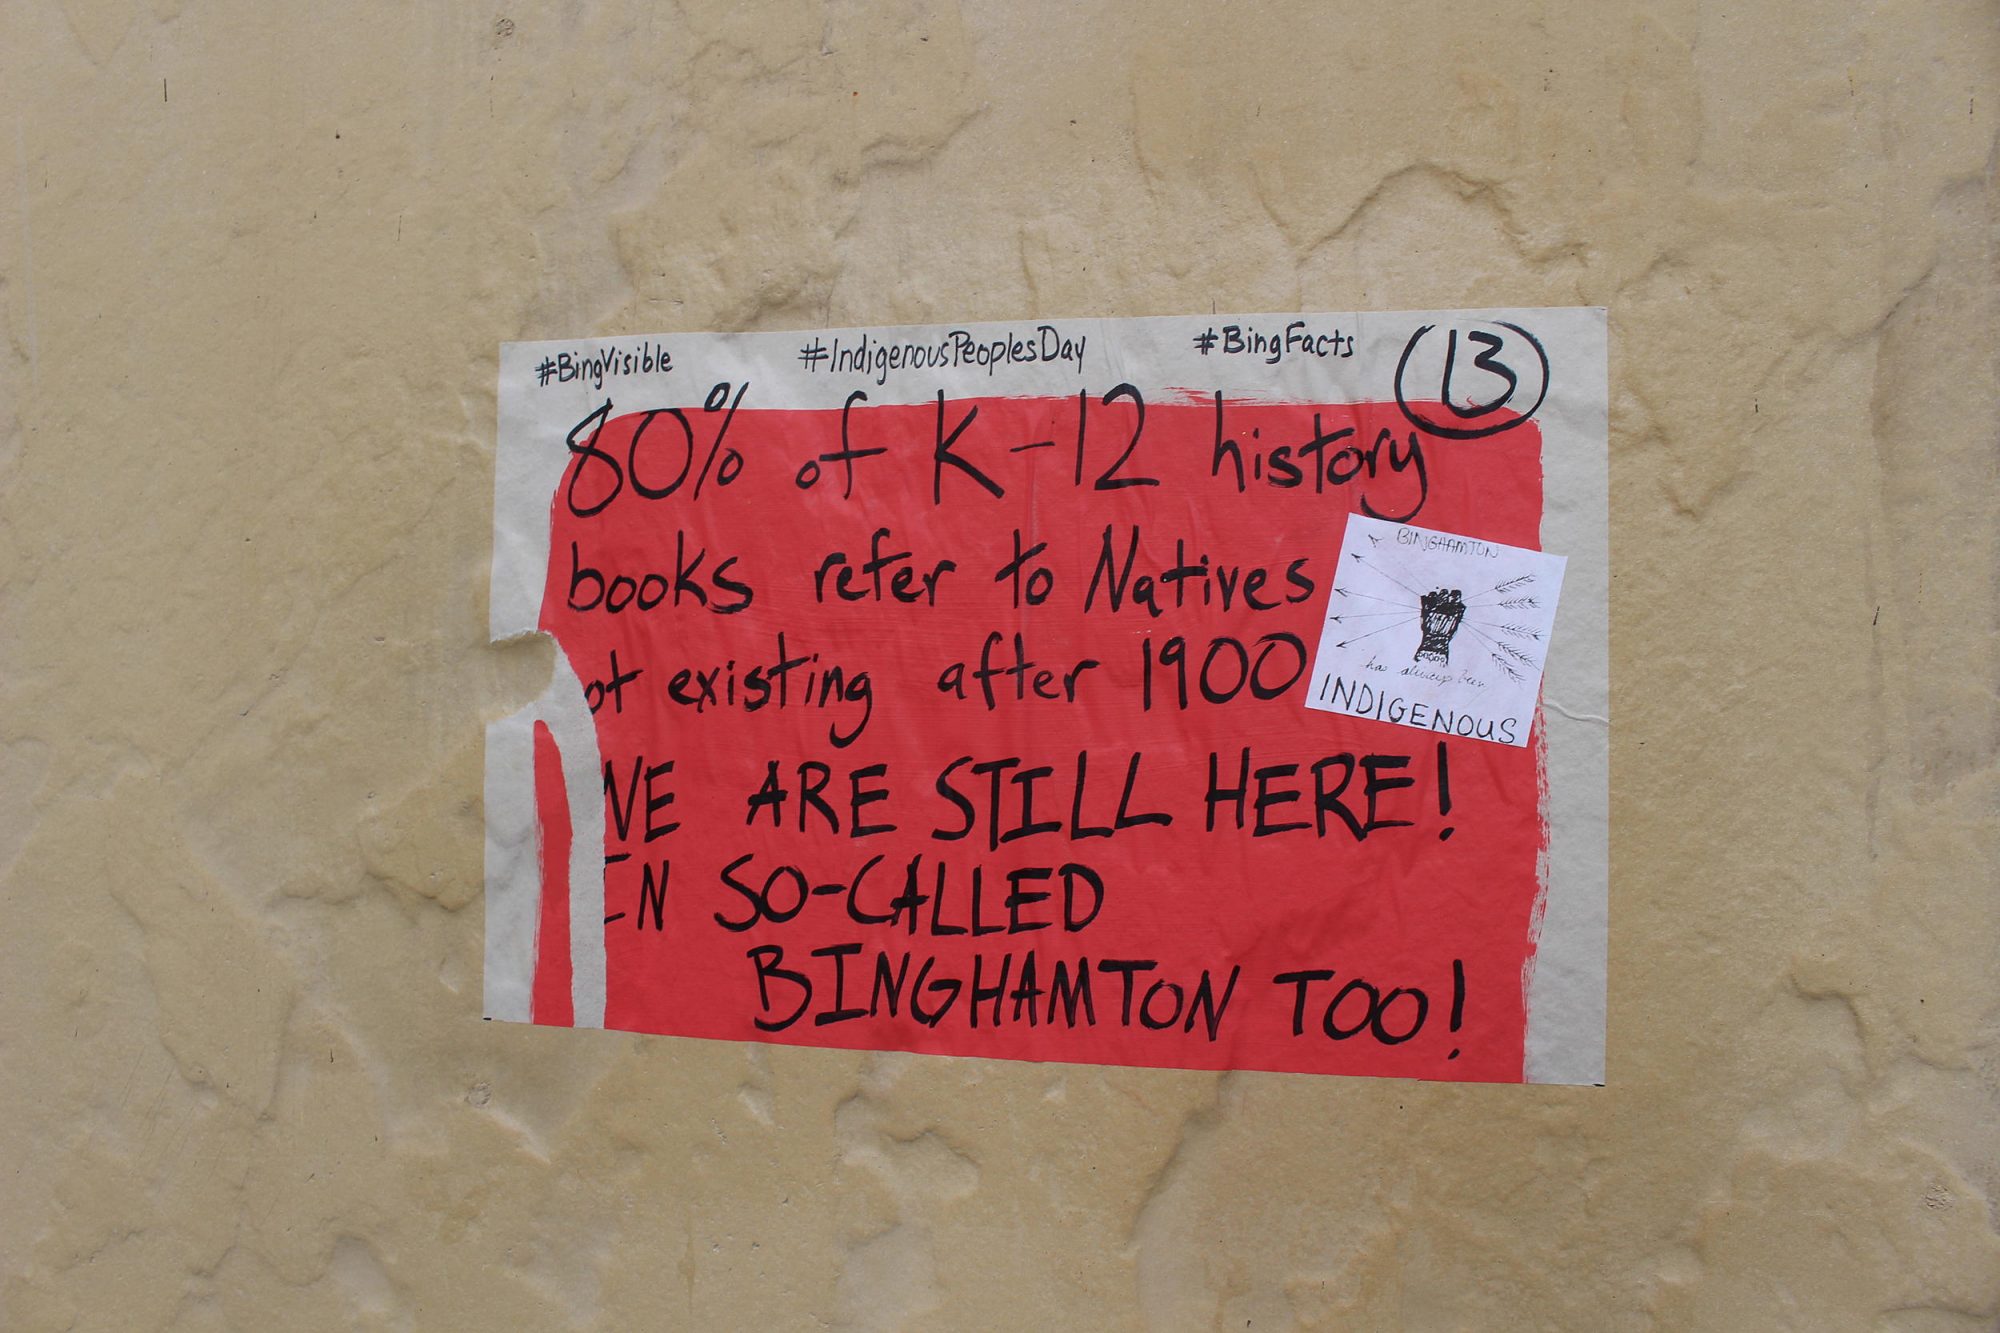 #BingVisible #IndigenousPeoplesDay #BingFacts 13
80% of K-12 history
books refer to Natives
ot existing after 1900
WE ARE STILL HERE!
IN SO-CALLED
BINGHAMTON TOO!
BINGHAMTON
has always been
INDIGENOUS